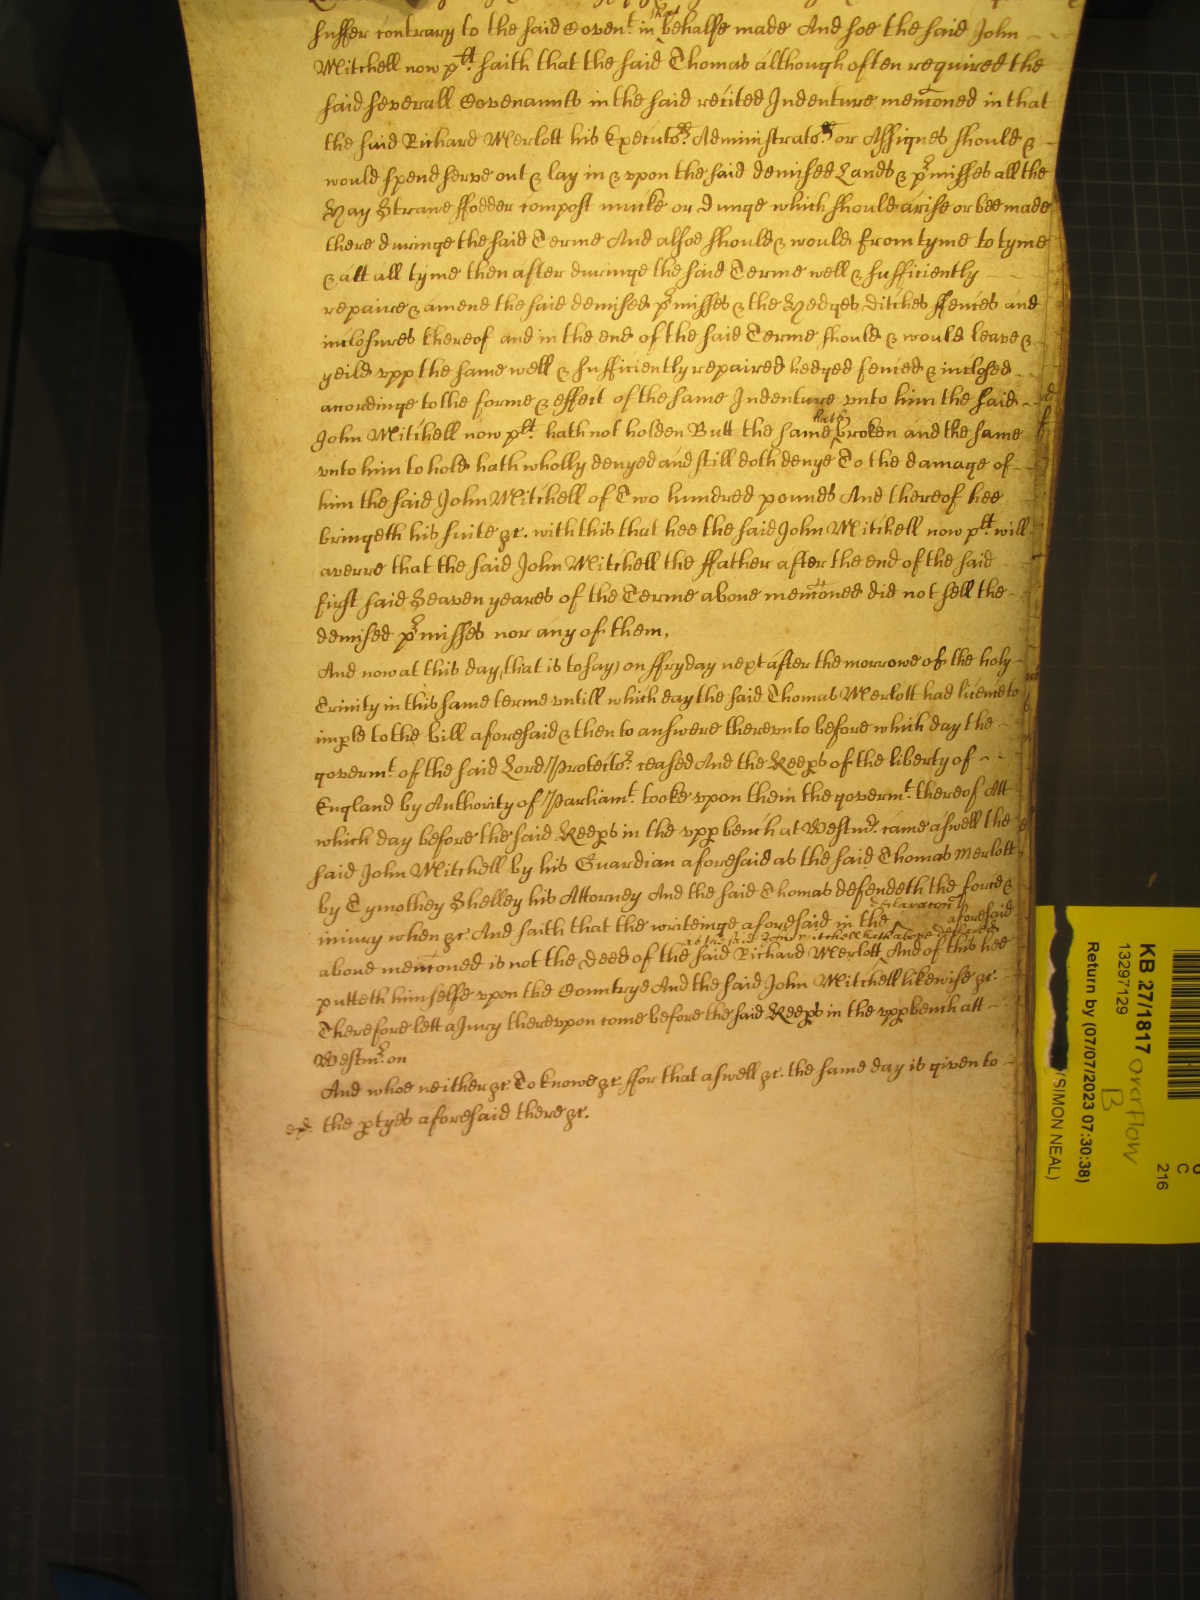 suffer contrary to the said Coven.t in that behalfe made And soe the said John
Mitchell now p.lt saith that the said Thomas although often required the
said severall Covenannts in the said recited Indenture menc̃oned in that
the said Richard Merlott his Executo.rs Administrato.rs or Assignes should &
would spend serve out & lay in & vpon the said demised Lands & p̃misses all the
Hay Strawe ffodder compost mucke or dunge which should arise or bee made
there duringe the said Terme And alsoe should & would from tyme to tyme
& att all tyme then after duringe the said Terme well & sufficiently
repaire & amend the said demised p̃misses & the Hedges ditches ffences and
inclosures thereof and in the end of the said Terme should & would leave &
yeild vpp the same well & sufficiently repaired hedged fenced & inclosed
accordinge to the forme & effect of the same Indenture vnto him the said
John Mitchell now p.lt hath not holden Butt the same hath broken and the same
vnto him to hold hath wholly denyed and still doth denye To the damage of
him the said John Mitchell of Two hundred pounds And thereof hee
bringeth his suite &c. with this that hee the said John Mitchell now p.lt will
averre that the said John Mitchell the ffather after the end of the said
first said Seaven yeares of the Terme above menc̃oned did not sell the
demised p̃misses nor any of them.
And now at this day, that is to say, on ffryday next after the morrowe of the holy
Trinity in this same terme vntill which day the said Thomas Merlott had licence to
imple to the bill aforesaid & then to answere therevnto before which day the
goverm.t of the said Lord Protecto.r ceased And the Keeps of the liberty of
England by Authority of Parliam.t tooke vpon them the goverm.t thereof Att
which day before the said Keeps in the vpp bench at Westm̃. came aswell the
said John Mitchell by his Guardian aforesaid as the said Thomas Merlott
by Tymothey Shelley his Attorney And the said Thomas defendeth the force &
iniury when &c And saith that the writeinge aforesaid in the declarac̃on aforesaid
above menc̃oned is not the deed of the said Richard Merlott as the said John Mitchell hath above declared And of this hee
putteth himselfe vpon the Countrye And the said John Mitchell likewise &c.
Therefore lett a Jury therevpon come before the said Keeps in the vpp bench att
Westm̃. on
And whoe neither &c To knowe &c ffor that aswell &c. the same day is given to
the ptyes aforesaid there &c.
KB 27/1817 overflow
B
13297129
Return by (07/07/2023 07:30:38)
(SIMON NEAL)
C
216